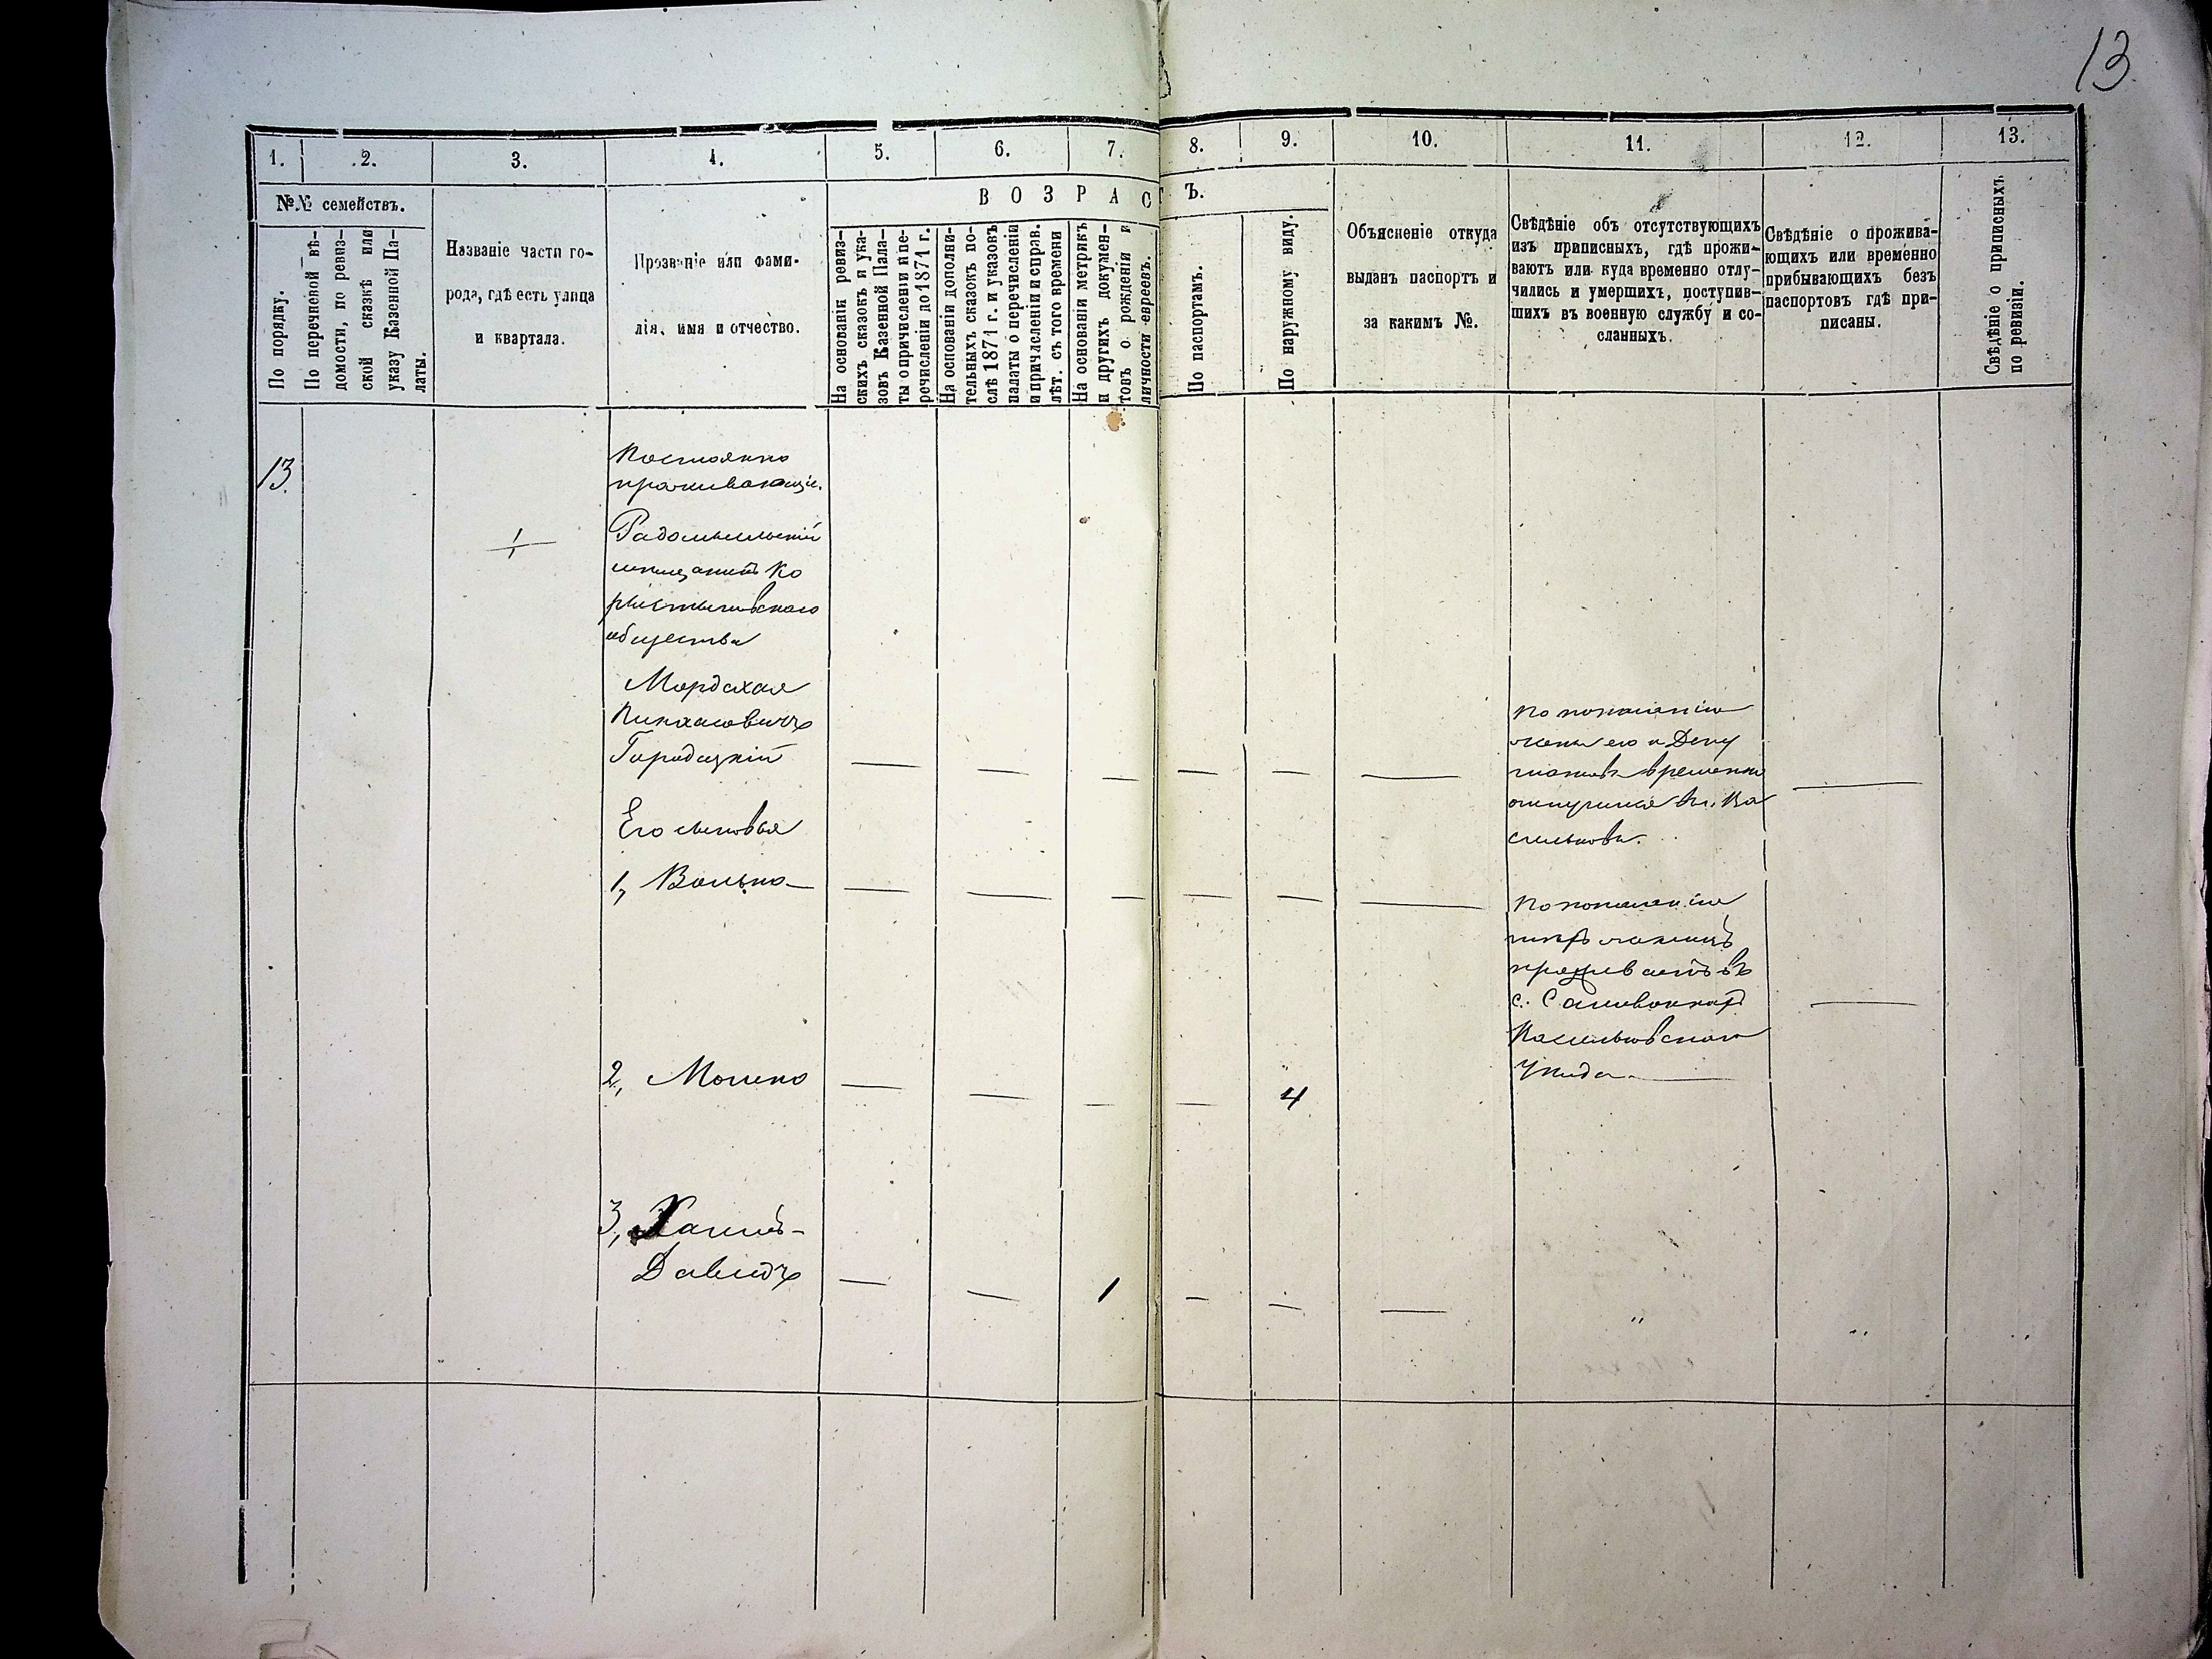 13
1.
2.
3.
4.
5.
6.
7.
8.
9.
10.
11.
12.
13.
№№ семействъ.
По порядку.
По перечневой вѣ-
домости, по ревиз-
ской сказкѣ или
указу Казенной Па-
латы.
Названіе части го-
рода, гдѣ есть улица
и квартала.
Прозваніе или фами-
лія, имя и отчество.
ВОЗРАСТЪ.
На основаніи ревиз-
скихъ сказокъ и ука-
зовъ Казенной Пала-
ты о причисленіи и пе-
речисленіи до 1871 г.
На основаніи дополни-
тельныхъ сказокъ по-
слѣ 1871 г. и указовъ
палаты о перечисленіи
и причисленіи и справ.
лѣт. съ того времени
На основаніи метрикъ
и другихъ докумен-
товъ о рожденіи и
личности евреевъ.
По паспортамъ.
По наружному виду.
Объясненіе откуда
выданъ паспортъ и
за какимъ №.
Свѣдѣніе объ отсутствующихъ
изъ приписныхъ, гдѣ прожи-
ваютъ или куда временно отлу-
чились и умершихъ, поступив-
шихъ въ военную службу и со-
сланныхъ.
Свѣдѣніе о прожива-
ющихъ или временно
прибывающихъ безъ
паспортовъ гдѣ при-
писаны.
Свѣдѣніе о приписныхъ
по ревизіи.
13.
Постоянно
проживающіе.
1
Радомысльскій
мѣщанинъ Ко
ростышевскаго
общества
Мордахая
Пинхасовичъ
Городецкій
Его сыновья
1, Волько
2, Мошко
4
3, Хаимъ-
Давидъ
1
По показанію
жены его и Депу
татовъ временно
отлучился въ г. Ва
сильковъ.
По показанію
проживаетъ въ
с.
Васильковскаго
Уѣзда.